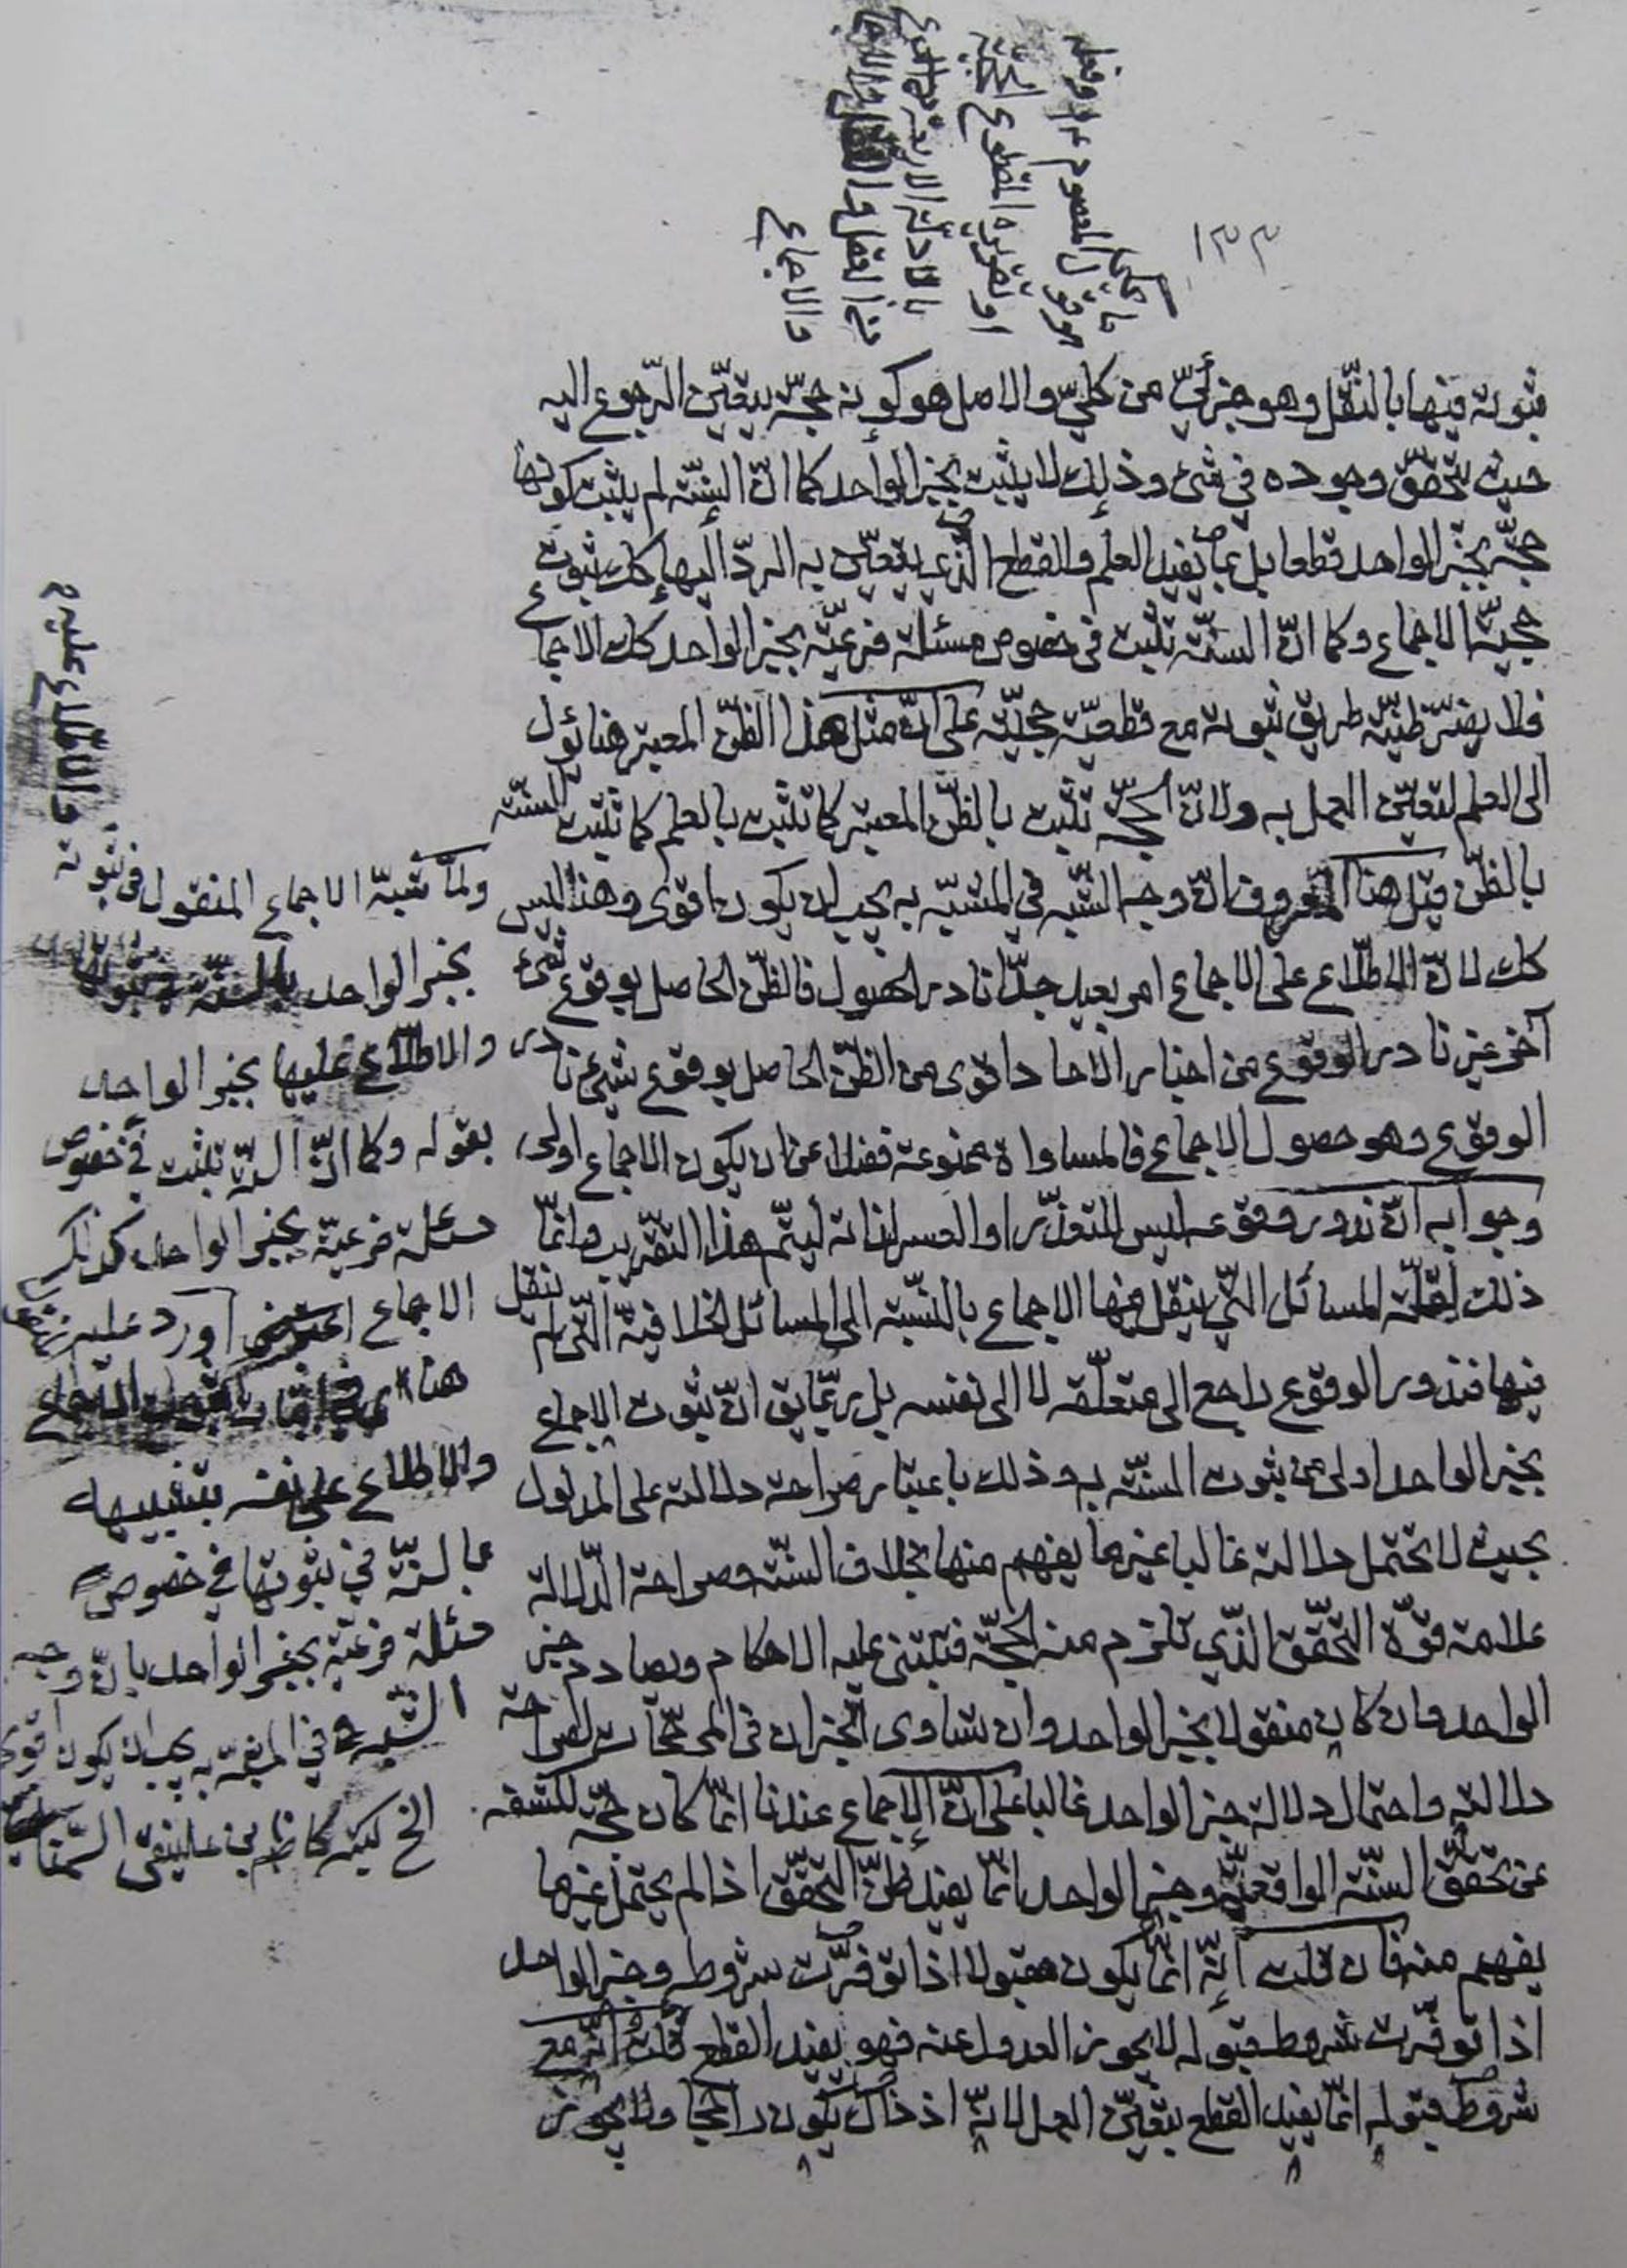 ١٣٣
ثبوته فيها بالنّقل وهو جزئيّ من كليّ والاصل هو كونه حجّة يتعيّن الرّجوع اليه
حيث تحقّق وجوده في شئ وذلك لا يثبت بخبر الواحد كما انّ السّنّة لم يثبت كونها
حجّة بخبر الواحد قطعا بل بما يفيد العلم والقطع الّذي يتعيّن به الردّ اليها كك ثبوت
حجيّة الاجماع وكما انّ السنّة تثبت في خصوص مسئلة فرعيّة بخبر الواحد كك الاجماع
فلا يضرّ ظنيّة طريق ثبوته مع قطعيّة حجيّته على انّ مثل هذا الظنّ المعتبر هنا يؤل
الى العلم لتعيّن العمل به ولانّ الحجّة تثبت بالظنّ المعتبر كما تثبت بالعلم كما تثبت السنّة
بالظنّ قيل هنا المعروف انّ وجه الشّبه في المشبّه به يجب ان يكون اقوى وهنا ليس
كك لانّ الاطّلاع على الاجماع امر بعيد جدّا نادر الحصول فالظنّ الحاصل بوقوع شئ
آخر غير نادر الوقوع من اخبار الآحاد اقوى من الظنّ الحاصل بوقوع شئ نادر
الوقوع وهو حصول الاجماع فالمساواة ممنوعة فضلا عن ان يكون الاجماع اولى
وجوابه انّ ندور وقوعه ليس للتعذّر او العسر لذاته ليتمّ هذا التقريب وانّما
ذلك لقلّة المسائل الّتي ينقل فيها الاجماع بالنّسبة الى المسائل الخلافيّة الّتي لم ينقل
فيها فندور الوقوع راجع الى متعلّقه لا الى نفسه بل ربّما يق انّ ثبوت الاجماع
بخبر الواحد اولى من ثبوت السنّة به وذلك باعتبار صراحة دلالته على المدلول
بحيث لا تحتمل دلالته غالبا غير ما يفهم منها بخلاف السنّة وصراحة الدّلالة
علامة قوّة التحقّق الّذي تلزم منه الحجّة فتبتنى عليه الاحكام ويصادم خبر
الواحد وان كان منقولا بخبر الواحد وان تساوى الخبران في المرجّحات لصراحة
دلالته واحتمال دلالة خبر الواحد غالبا على انّ الاجماع عندنا انّما كان حجّة لكشفه
عن تحقّق السنّة الواقعيّة وخبر الواحد انّما يفيد ظنّ التحقّق اذا لم يحتمل غير ما
يفهم منه فان قلت انّه انّما يكون مقبولا اذا توفّرت شروطه وخبر الواحد
اذا توفّرت شروط قبوله لا يجوز العدول عنه فهو يفيد القطع قلت انّه مع
شروط قبوله انّما يفيد القطع بتعيّن العمل لانّه اذ ذاك يكون راجحا ولا يجوز
ولمّا شبّه الاجماع المنقول في ثبوته والاطّلاع عليه
بخبر الواحد بالسنّة في ثبوتها
والاطّلاع عليها بخبر الواحد
بقوله وكما انّ السنّة تثبت في خصوص
مسئلة فرعيّة بخبر الواحد كذلك
الاجماع اورد عليه
هنا
والاطلاع على نفسه بتشبيهه
بالسنّة في ثبوتها في خصوص
مسئلة فرعيّة بخبر الواحد بانّ وجه
الشّبه في المشبّه به يجب ان يكون اقوى
الخ كتبه كاظم بن علينقى السّمنانى